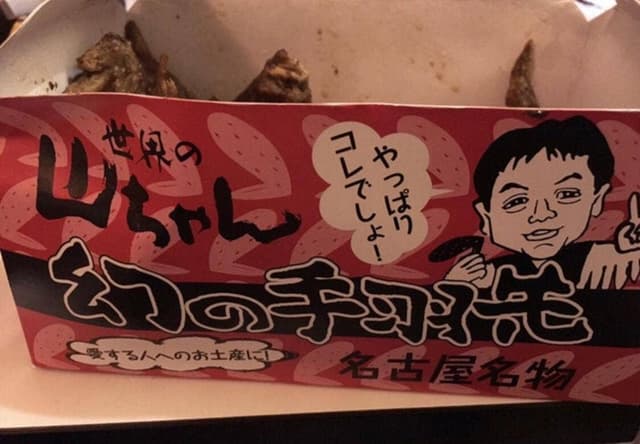 世界の
山ちゃん
やっぱり
コレでしょ!
幻の手羽先
愛する人へのお土産に!
名古屋名物